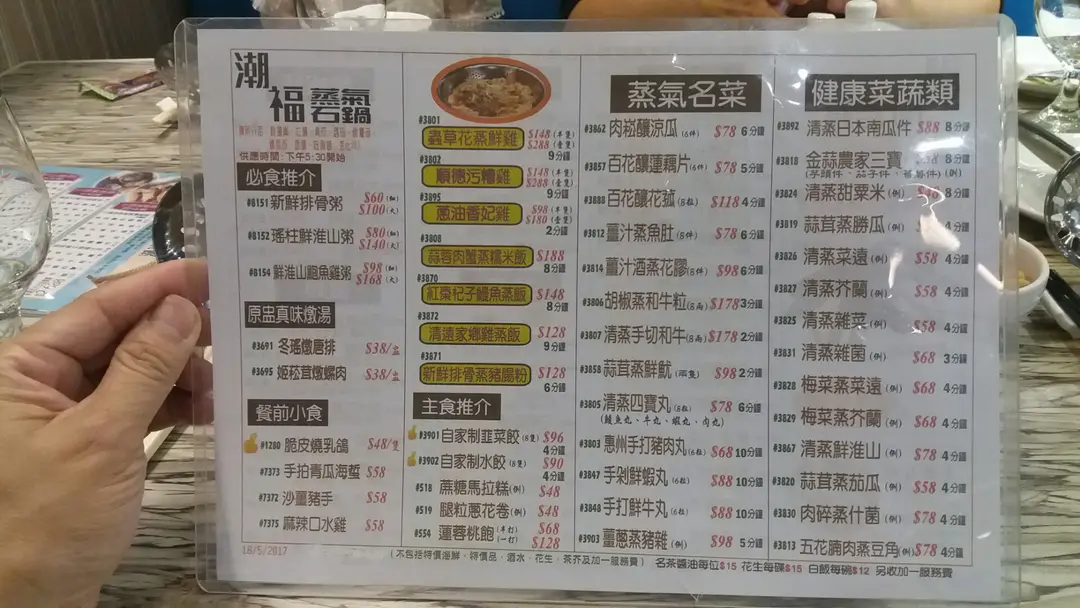 潮福 蒸氣石鍋
供應時間:下午5:30開始
必食推介
#8151 新鮮排骨粥 $60(細) $100(大)
#8152 瑤柱鮮淮山粥 $80(細) $140(大)
#8154 鮮淮山鮑魚雞粥 $98(細) $168(大)
原盅真味燉湯
#3691 冬瑤燉唐排 $38/盅
#3695 姬菘茸燉螺肉 $38/盅
餐前小食
#1280 脆皮燒乳鴿 $48/隻
#7373 手拍青瓜海蜇 $58
#7372 沙薑豬手 $58
#7375 麻辣口水雞 $58
18/5/2017
#3801
蟲草花蒸鮮雞 $148(半隻) $288(壹隻)
9分鐘
#3802
順德污糟雞 $148(半隻) $288(壹隻)
9分鐘
#3895
蔥油香妃雞 $98(半隻) $180(壹隻)
2分鐘
#3808
蒜蓉肉蟹蒸糯米飯 $188
8分鐘
#3870
紅棗杞子鰻魚蒸飯 $148
8分鐘
#3872
清遠家鄉雞蒸飯 $128
9分鐘
#3871
新鮮排骨蒸豬腸粉 $128
6分鐘
主食推介
#3901 自家制韮菜餃(8隻) $96
4分鐘
#3902 自家制水餃(8隻) $90
4分鐘
#518 蔗糖馬拉糕(例) $48
#519 腿粒蔥花卷(例) $48
#554 蓮蓉桃飽(半打) $68
(一打) $128
蒸氣名菜
#3862 肉崧釀涼瓜(6件) $78 6分鐘
#3857 百花釀蓮藕片(6件) $78 5分鐘
#3888 百花釀花菰(8粒) $118 4分鐘
#3812 薑汁蒸魚肚(8件) $78 6分鐘
#3814 薑汁酒蒸花膠(8件) $98 6分鐘
#3806 胡椒蒸和牛粒(8両) $178 3分鐘
#3807 清蒸手切和牛(8両) $178 2分鐘
#3858 蒜茸蒸鮮魷(兩隻) $98 2分鐘
#3805 清蒸四寶丸(8粒) $78 6分鐘
(鯪魚丸、牛丸、蝦丸、肉丸)
#3803 惠州手打豬肉丸(6粒) $68 10分鐘
#3847 手剁鮮蝦丸(6粒) $88 10分鐘
#3848 手打鮮牛丸(6粒) $88 10分鐘
#3903 薑蔥蒸豬雜(例) $98 5分鐘
健康菜蔬類
#3892 清蒸日本南瓜件 $88 8分鐘
#3818 金蒜農家三寶 $58 8分鐘
#3824 清蒸甜粟米(例) 8分鐘
#3819 蒜茸蒸勝瓜(例) 4分鐘
#3826 清蒸菜遠(例) $58 4分鐘
#3827 清蒸芥蘭(例) $58 4分鐘
#3825 清蒸雜菜(例) $58 4分鐘
#3831 清蒸雜菌(例) $68 3分鐘
#3828 梅菜蒸菜遠(例) $68 4分鐘
#3829 梅菜蒸芥蘭(例) $68 4分鐘
#3867 清蒸鮮淮山(例) $78 4分鐘
#3820 蒜茸蒸茄瓜(例) $58 4分鐘
#3830 肉碎蒸什菌(例) $78 4分鐘
#3813 五花腩肉蒸豆角(例) $78 4分鐘
(不包括特價海鮮、特價品、酒水、花生、茶芥及加一服務費) 名茶醬油每位$15 花生每碟$15 白飯每碗$12 另收加一服務費